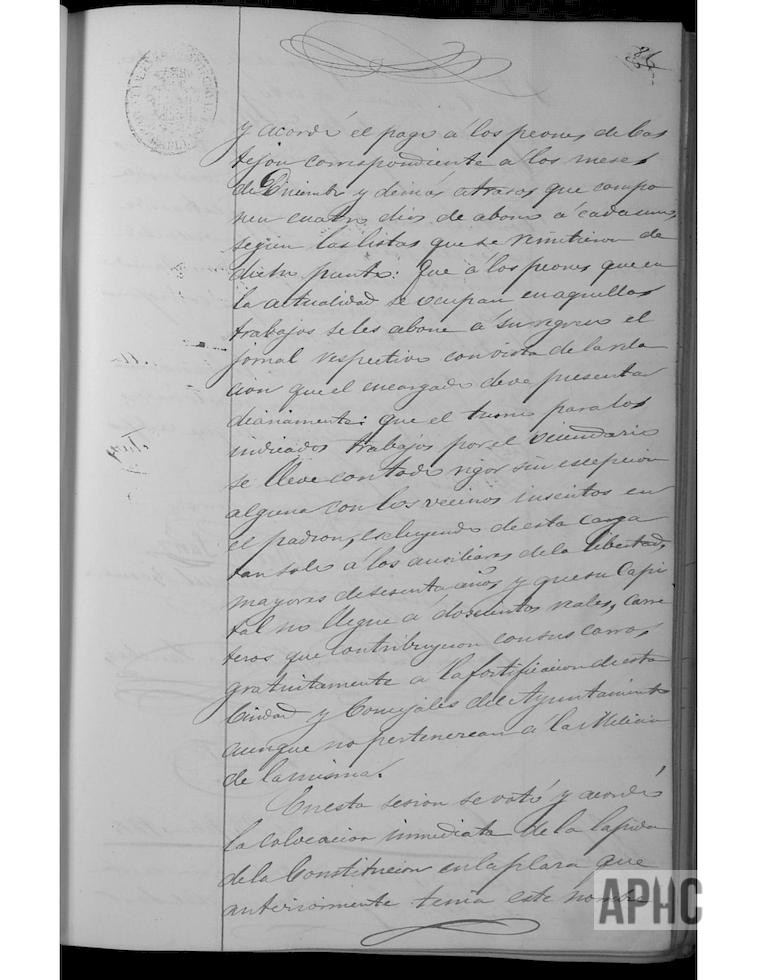 86
y acordó el pago á los peones de Cas
tejon correspondiente a los meses
de Diciembre y demas atrasos que compo
nen cuatro dias de abono á cada uno,
segun las listas que se remitieron de
dicho punto: Que á los peones que en
la actualidad se ocupan en aquellos
trabajos se les abone á su regreso el
jornal respectivo con vista de la rela
cion que el encargado deve presentar
diariamente: que el turno para los
indicados trabajos por el vecindario
se lleve con todo rigor sin escepcion
alguna con los vecinos inscritos en
el padron, escluyendo de esta carga
tan solo á los ausiliares de la libertad,
mayores de sesenta años y que su Capi
tal no llegue á doscientos reales, carre
teros que contribuyeron con sus carros
gratuitamente a la fortificacion de esta
Ciudad y Concejales del Ayuntamiento
aunque no pertenezcan á la Milicia
de la misma.
En esta sesion se votó y acordó
la colocacion inmediata de la lapida
de la Constitucion en la plaza que
anteriormente tenia este nombre
APHC